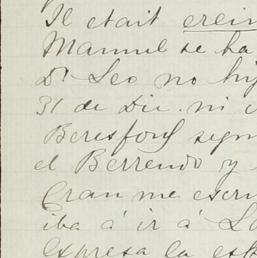 Il etait erein
Manuel se ha
Dr Leo no hi
31 de Dic. ni
Beresford
el Berrendo y
Gran me escri
iba á ir á Lo
expresa la es